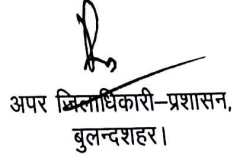 अपर जिलाधिकारी–प्रशासन,
बुलन्दशहर।